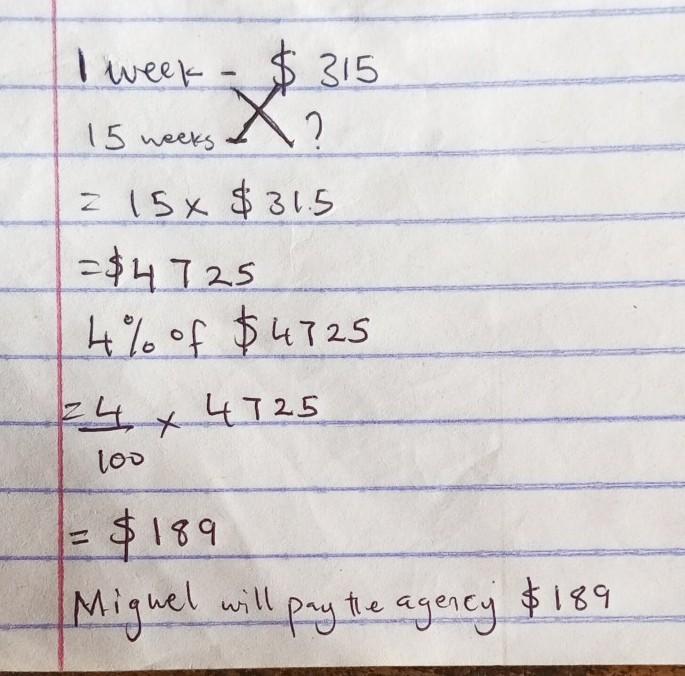 1 week - $ 315
15 weeks - ?
= 15 x $ 31.5
= $4725
4% of $4725
= 4/100 x 4725
= $189
Miguel will pay the agency $189